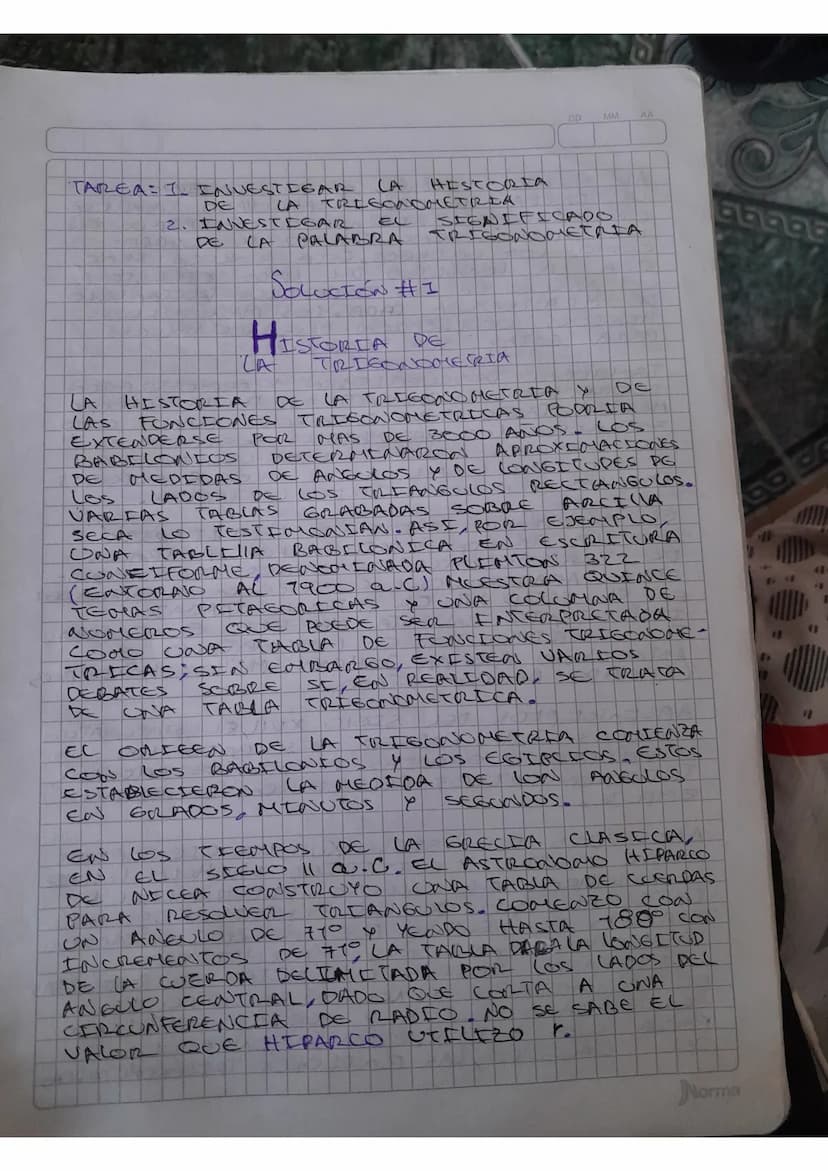 DD MM AA
TAREA= 1. INVESTIGAR LA HISTORIA
DE LA TRIGONOMETRIA
2. INVESTIGAR EL SIGNIFICADO
DE LA PALABRA TRIGONOMETRIA
SOLUCIÓN #1
HISTORIA DE
LA TRIGONOMETRIA
LA HISTORIA DE LA TRIGONOMETRIA Y DE
LAS FUNCIONES TRIGONOMETRICAS PODRIA
EXTENDERSE POR MAS DE 3000 AÑOS. LOS
BABILONICOS DETERMINARON APROXIMACIONES
DE MEDIDAS DE ANGULOS Y DE LONGITUDES DE
LOS LADOS DE LOS TRIANGULOS RECTANGULOS.
VARIAS TABLAS GRABADAS SOBRE ARCILLA
SECA LO TESTIMONIAN. ASI, POR EJEMPLO,
UNA TABLILLA BABILONICA EN ESCRITURA
CUNEIFORME, DENOMINADA PLIMTON 322
(ENTORNO AL 1900 a.C) MUESTRA QUINCE
TERNAS PITAGORICAS Y UNA COLUMNA DE
NUMEROS QUE PUEDE SER INTERPRETADA
COMO UNA TABLA DE FUNCIONES TRIGONOME-
TRICAS; SIN EMBARGO, EXISTEN VARIOS
DEBATES SOBRE SI, EN REALIDAD, SE TRATA
DE UNA TABLA TRIGONOMETRICA.
EL ORIGEN DE LA TRIGONOMETRIA COMIENZA
CON LOS BABILONIOS Y LOS EGIPCIOS. ESTOS
ESTABLECIERON LA MEDIDA DE LON ANGULOS
EN GRADOS, MINUTOS Y SEGUNDOS.
EN LOS TIEMPOS DE LA GRECIA CLASICA,
EN EL SIGLO II a.C. EL ASTRONOMO HIPARCO
DE NICEA CONSTRUYO UNA TABLA DE CUERDAS
PARA RESOLVER TRIANGULOS. COMENZO CON
UN ANGULO DE 71° Y YENDO HASTA 180° CON
INCREMENTOS DE 71°, LA TABLA DABA LA LONGITUD
DE LA CUERDA DELIMITADA POR LOS LADOS DEL
ANGULO CENTRAL, DADO QUE CORTA A UNA
CIRCUNFERENCIA DE RADIO. NO SE SABE EL
VALOR QUE HIPARCO UTILIZO r.
Norma